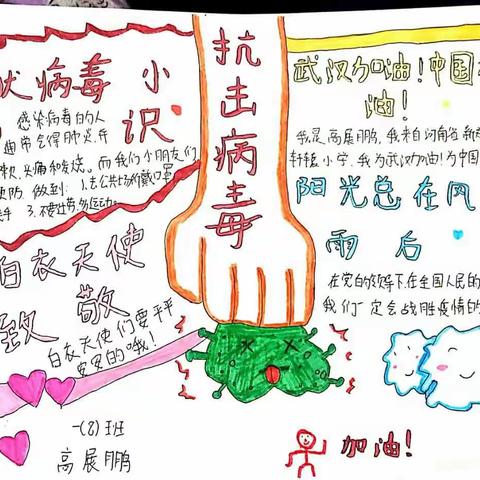 抗击病毒
状病毒小
识
感染病毒的人
会得肺炎,并
头痛和发烧。而我们小朋友们
预防 做到: 1.去公共场所戴口罩
手 3.不要过劳,多运动。
白衣天使
致敬
白衣天使们要平
安安的哦!
一(8)班
高展鹏
武汉加油!中国
油!
我是高展鹏,我来自河南省新
轩辕小学,我为武汉加油!为中国
阳光总在风
雨后
在党的领导下,在全国人民的
我们一定会战胜疫情的
加油!